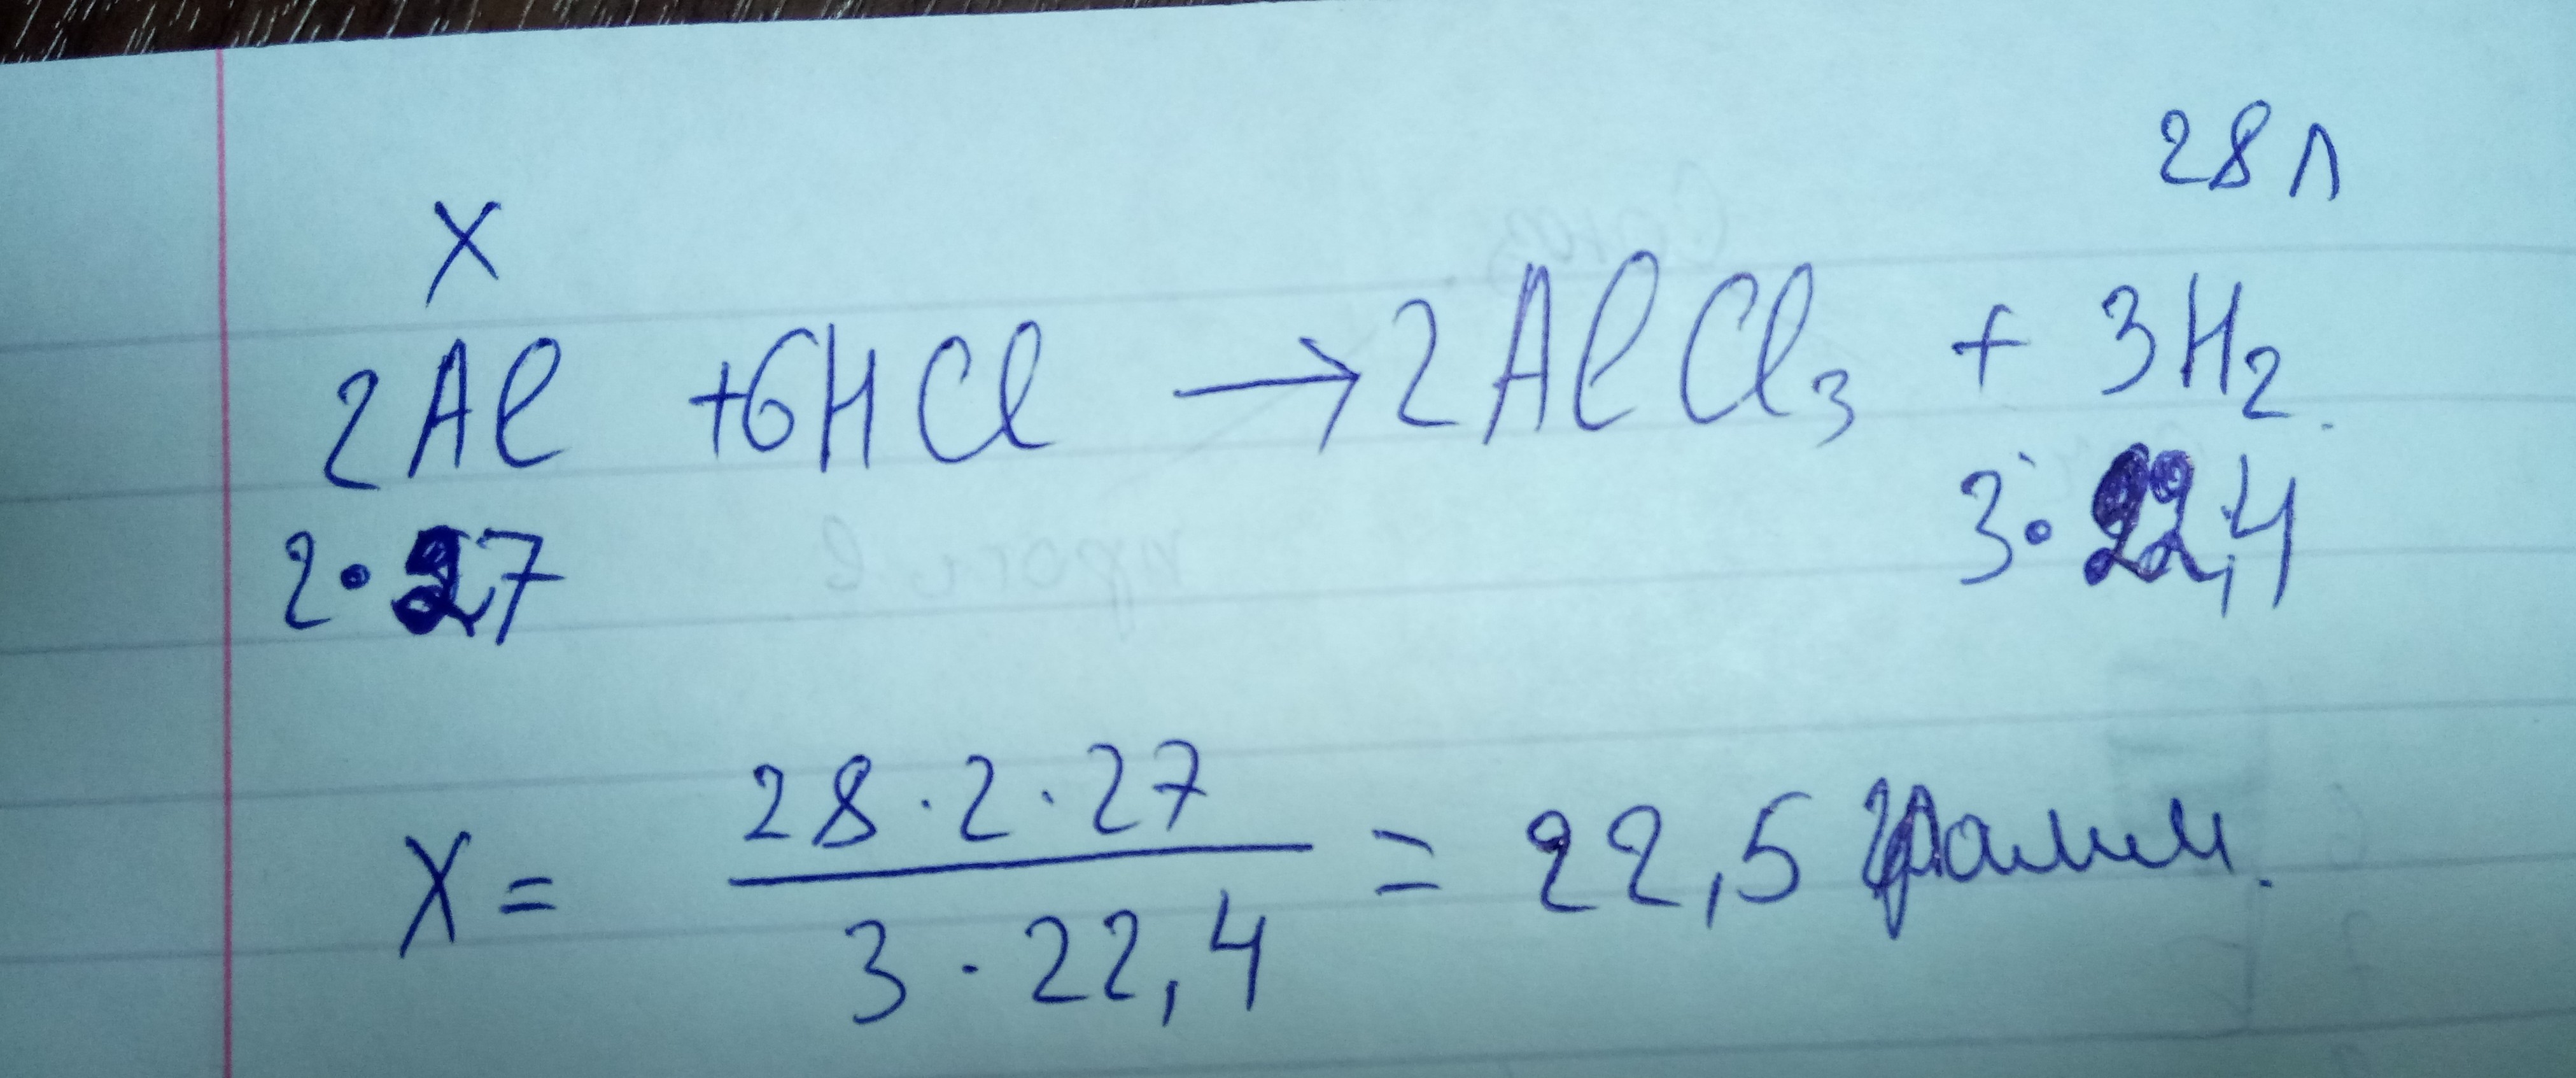 28 л
X
2Al +6HCl → 2AlCl₃ + 3H₂.
2·27 3·22,4
X = 28·2·27 / 3·22,4 = 22,5 грамм.